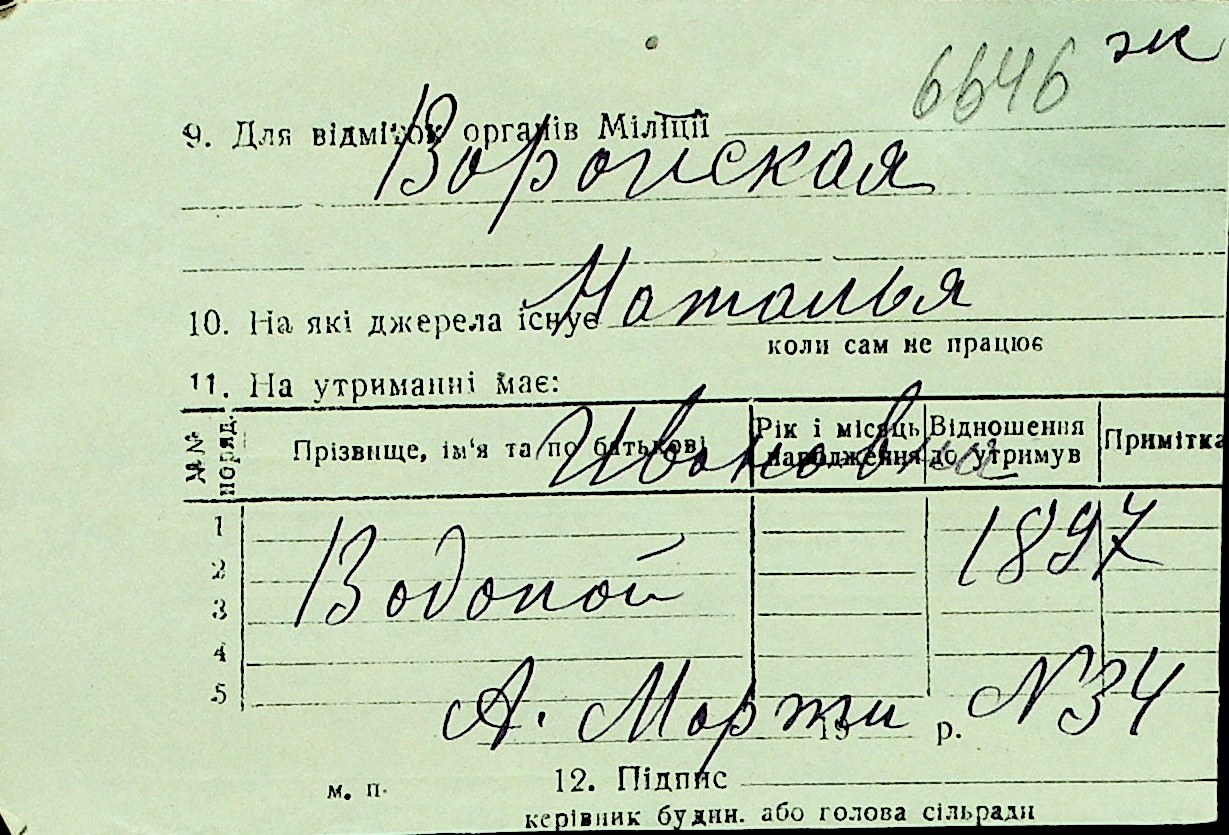 6646 эк
9. Для відміток органів Міліції
Воронская
10. На які джерела існує
Наталья
коли сам не працює
11. На утриманні має:
№№ поряд. Прізвище, ім'я та по батькові Рік і місяць народження Відношення до утримув Примітка
Ивановна
1
1897
2
Водопой
3
4
5
А. Марти №34
19 р.
12. Підпис
м. п.
керівник будин. або голова сільради